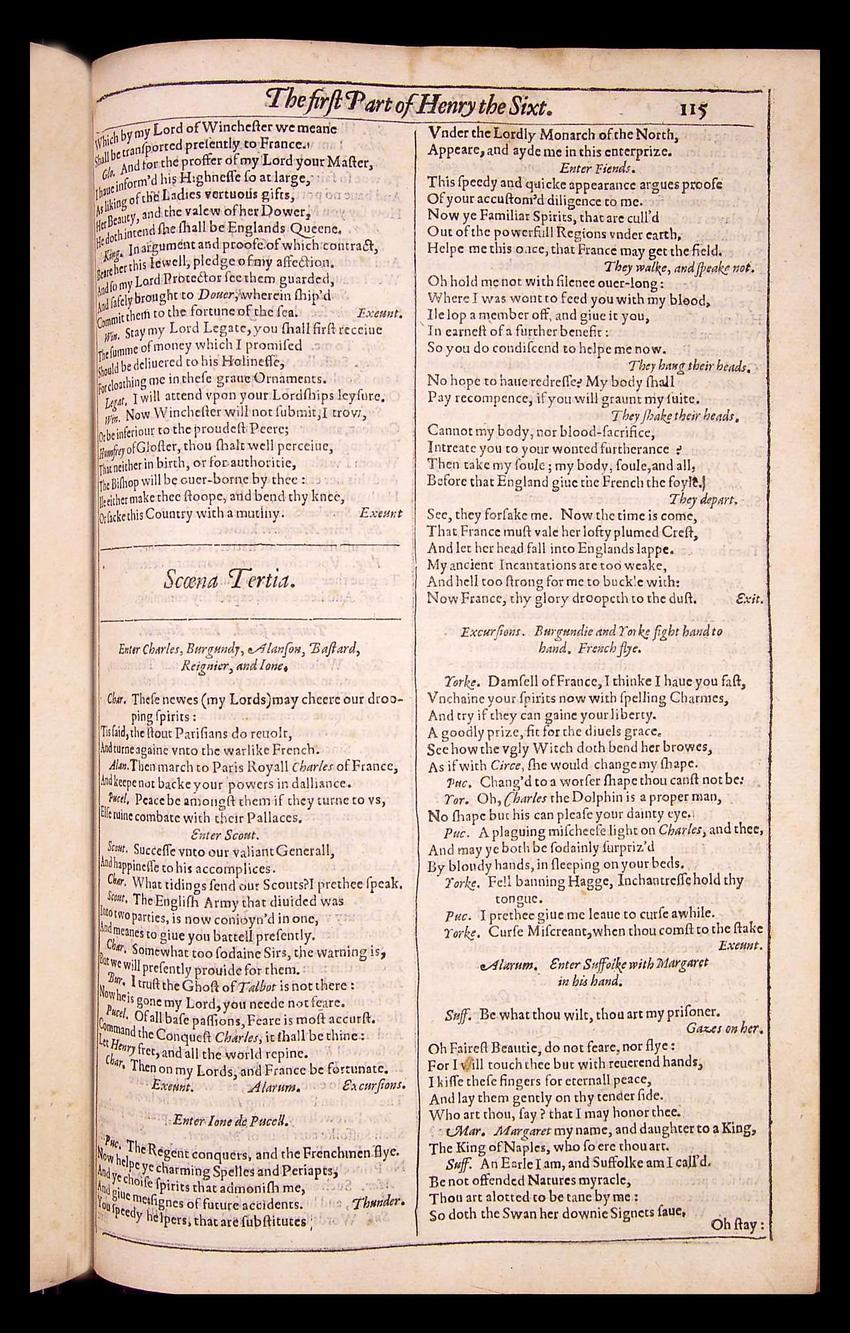 The firſt Part of Henry the Sixt.
115
Which by my Lord of Wincheſter we meane
Shall be tranſported preſently to France.
Glo. And for the proffer of my Lord your Maſter,
I haue inform'd his Highneſſe ſo at large,
As liking of the Ladies vertuous gifts,
Her Beauty, and the valew of her Dower,
He doth intend ſhe ſhall be Englands Queene.
King. In argument and proofe of which contract,
Beare her this Iewell, pledge of my affection.
And ſo my Lord Protector ſee them guarded,
And ſafely brought to Douer, wherein ſhip'd
Commit them to the fortune of the ſea. Exeunt.
Win. Stay my Lord Legate, you ſhall firſt receiue
The ſumme of money which I promiſed
Should be deliuered to his Holineſſe,
For cloathing me in theſe graue Ornaments.
Legat. I will attend vpon your Lordſhips leyſure.
Win. Now Wincheſter will not ſubmit, I trow,
Or be inferiour to the proudeſt Peere;
Humfrey of Gloſter, thou ſhalt well perceiue,
That neither in birth, or for authoritie,
The Biſhop will be ouer-borne by thee :
Ile either make thee ſtoope, and bend thy knee,
Or ſacke this Country with a mutiny. Exeunt
Scœna Tertia.
Enter Charles, Burgundy, Alanſon, Baſtard,
Reignier, and Ione.
Char. Theſe newes (my Lords) may cheere our droo-
ping ſpirits :
'Tis ſaid, the ſtout Pariſians do reuolt,
And turne againe vnto the warlike French.
Alan. Then march to Paris Royall Charles of France,
And keepe not backe your powers in dalliance.
Pucel. Peace be amongſt them if they turne to vs,
Elſe ruine combate with their Pallaces.
Enter Scout.
Scout. Succeſſe vnto our valiant Generall,
And happineſſe to his accomplices.
Char. What tidings ſend our Scouts? I prethee ſpeak.
Scout. The Engliſh Army that diuided was
Into two parties, is now conioyn'd in one,
And meanes to giue you battell preſently.
Char. Somewhat too ſodaine Sirs, the warning is,
But we will preſently prouide for them.
Bur. I truſt the Ghoſt of Talbot is not there :
Now he is gone my Lord, you neede not feare.
Pucel. Of all baſe paſſions, Feare is moſt accurſt.
Command the Conqueſt Charles, it ſhall be thine :
Let Henry fret, and all the world repine.
Char. Then on my Lords, and France be fortunate.
Exeunt. Alarum. Excurſions.
Enter Ione de Pucell.
Puc. The Regent conquers, and the Frenchmen flye.
Now helpe ye charming Spelles and Periapts,
And ye choiſe ſpirits that admoniſh me,
And giue me ſignes of future accidents. Thunder.
You ſpeedy helpers, that are ſubſtitutes
Vnder the Lordly Monarch of the North,
Appeare, and ayde me in this enterprize.
Enter Fiends.
This ſpeedy and quicke appearance argues proofe
Of your accuſtom'd diligence to me.
Now ye Familiar Spirits, that are cull'd
Out of the powerfull Regions vnder earth,
Helpe me this once, that France may get the field.
They walke, and ſpeake not.
Oh hold me not with ſilence ouer-long :
Where I was wont to feed you with my blood,
Ile lop a member off, and giue it you,
In earneſt of a further benefit :
So you do condiſcend to helpe me now.
They hang their heads.
No hope to haue redreſſe? My body ſhall
Pay recompence, if you will graunt my ſuite.
They ſhake their heads.
Cannot my body, nor blood-ſacrifice,
Intreate you to your wonted furtherance ?
Then take my ſoule ; my body, ſoule, and all,
Before that England giue the French the foyle.
They depart.
See, they forſake me. Now the time is come,
That France muſt vale her lofty plumed Creſt,
And let her head fall into Englands lappe.
My ancient Incantations are too weake,
And hell too ſtrong for me to buckle with:
Now France, thy glory droopeth to the duſt. Exit.
Excurſions. Burgundie and Yorke fight hand to
hand. French flye.
Yorke. Damſell of France, I thinke I haue you faſt,
Vnchaine your ſpirits now with ſpelling Charmes,
And try if they can gaine your liberty.
A goodly prize, fit for the diuels grace.
See how the vgly Witch doth bend her browes,
As if with Circe, ſhe would change my ſhape.
Puc. Chang'd to a worſer ſhape thou canſt not be:
Yor. Oh, Charles the Dolphin is a proper man,
No ſhape but his can pleaſe your dainty eye.
Puc. A plaguing miſcheefe light on Charles, and thee,
And may ye both be ſodainly ſurpriz'd
By bloudy hands, in ſleeping on your beds.
Yorke. Fell banning Hagge, Inchantreſſe hold thy
tongue.
Puc. I prethee giue me leaue to curſe awhile.
Yorke. Curſe Miſcreant, when thou comſt to the ſtake
Exeunt.
Alarum. Enter Suffolke with Margaret
in his hand.
Suff. Be what thou wilt, thou art my priſoner.
Gazes on her.
Oh Faireſt Beautie, do not feare, nor flye :
For I will touch thee but with reuerend hands,
I kiſſe theſe fingers for eternall peace,
And lay them gently on thy tender ſide.
Who art thou, ſay ? that I may honor thee.
Mar. Margaret my name, and daughter to a King,
The King of Naples, who ſo ere thou art.
Suff. An Earle I am, and Suffolke am I call'd.
Be not offended Natures myracle,
Thou art alotted to be tane by me :
So doth the Swan her downie Signets ſaue,
Oh ſtay :